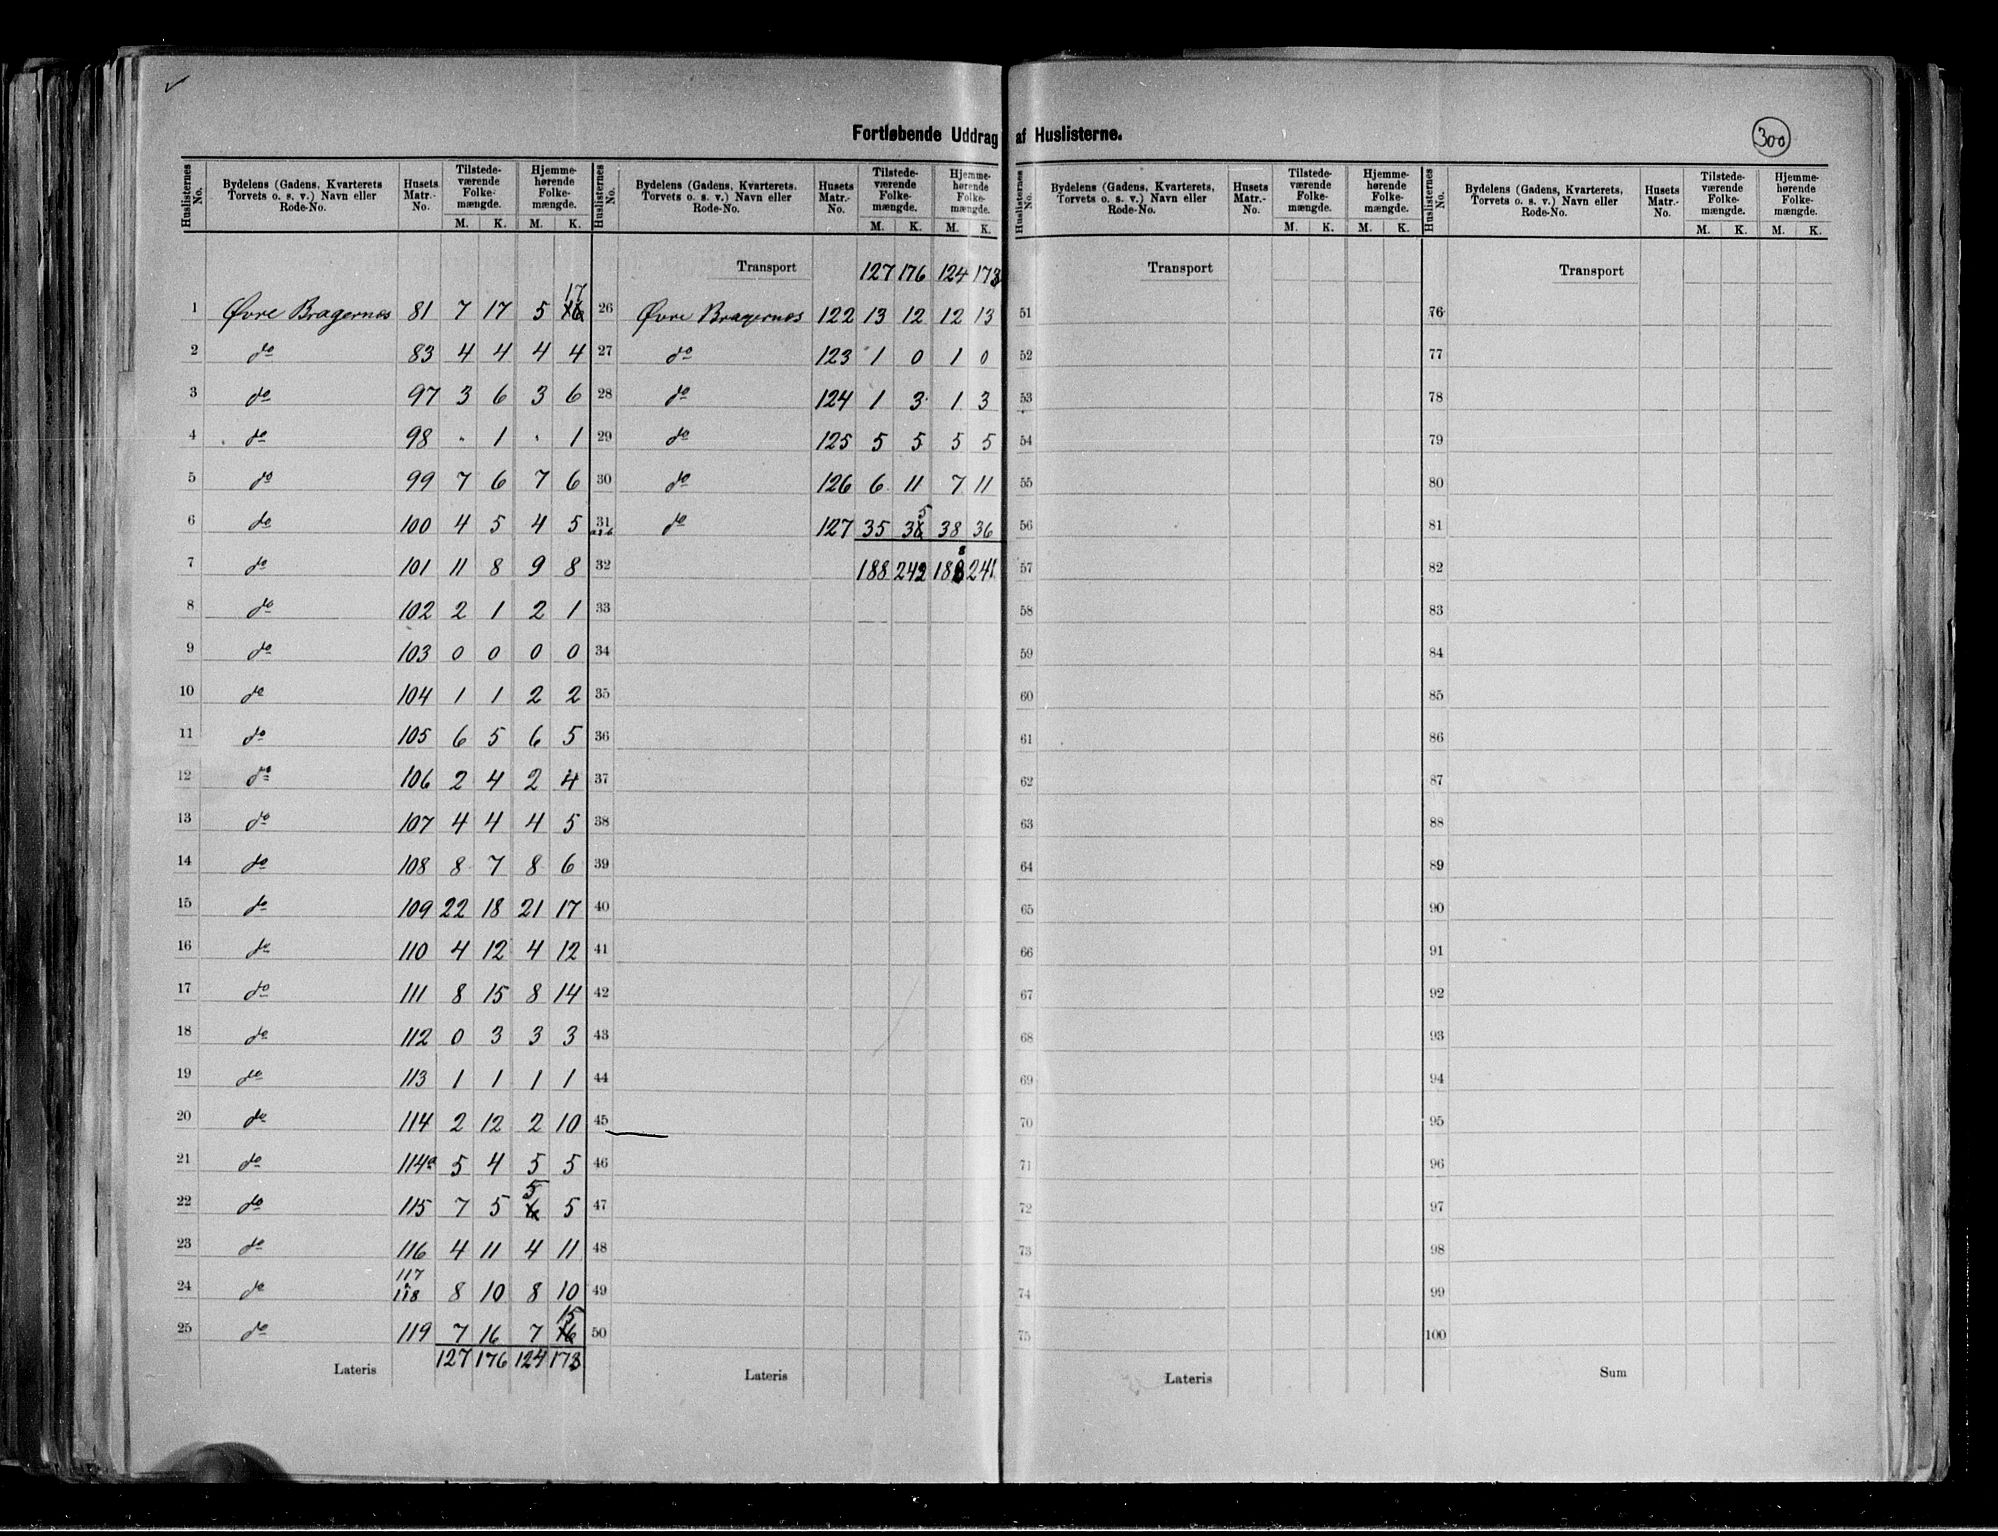 Fortløbende Uddrag af Huslisterne.
300
Huslisternes No. | Bydelens (Gadens, Kvarterets Torvets o. s. v.) Navn eller Rode-No. | Husets Matr.-No. | Tilstedeværende Folkemængde. M. K. | Hjemmehørende Folkemængde. M. K.
1 Øvre Bragernes 81 7 17 5 16 17
2 do 83 4 4 4 4
3 do 97 3 6 3 6
4 do 98 . 1 . 1
5 do 99 7 6 7 6
6 do 100 4 5 4 5
7 do 101 11 8 9 8
8 do 102 2 1 2 1
9 do 103 0 0 0 0
10 do 104 1 1 2 2
11 do 105 6 5 6 5
12 do 106 2 4 2 4
13 do 107 4 4 4 5
14 do 108 8 7 8 6
15 do 109 22 18 21 17
16 do 110 4 12 4 12
17 do 111 8 15 8 14
18 do 112 0 3 3 3
19 do 113 1 1 1 1
20 do 114 2 12 2 10
21 do 114a 5 4 5 5
22 do 115 7 5 6 5 5
23 do 116 4 11 4 11
24 do 117 118 8 10 8 10
25 do 119 7 16 7 16 15
Lateris 127 176 124 173
Huslisternes No. | Bydelens (Gadens, Kvarterets, Torvets o. s. v.) Navn eller Rode-No. | Husets Matr.-No. | Tilstedeværende Folkemængde. M. K. | Hjemmehørende Folkemængde. M. K.
Transport 127 176 124 173
26 Øvre Bragernes 122 13 12 12 13
27 do 123 1 0 1 0
28 do 124 1 3 1 3
29 do 125 5 5 5 5
30 do 126 6 11 7 11
31 a&b do 127 35 36 5 38 36
32 188 242 188 241
33
34
35
36
37
38
39
40
41
42
43
44
45
46
47
48
49
50
Lateris
Huslisternes No. | Bydelens (Gadens, Kvarterets, Torvets o. s. v.) Navn eller Rode-No. | Husets Matr.-No. | Tilstedeværende Folkemængde. M. K. | Hjemmehørende Folkemængde. M. K.
Transport
51
52
53
54
55
56
57
58
59
60
61
62
63
64
65
66
67
68
69
70
71
72
73
74
75
Lateris
Huslisternes No. | Bydelens (Gadens, Kvarterets, Torvets o. s. v.) Navn eller Rode-No. | Husets Matr.-No. | Tilstedeværende Folkemængde. M. K. | Hjemmehørende Folkemængde. M. K.
Transport
76
77
78
79
80
81
82
83
84
85
86
87
88
89
90
91
92
93
94
95
96
97
98
99
100
Sum